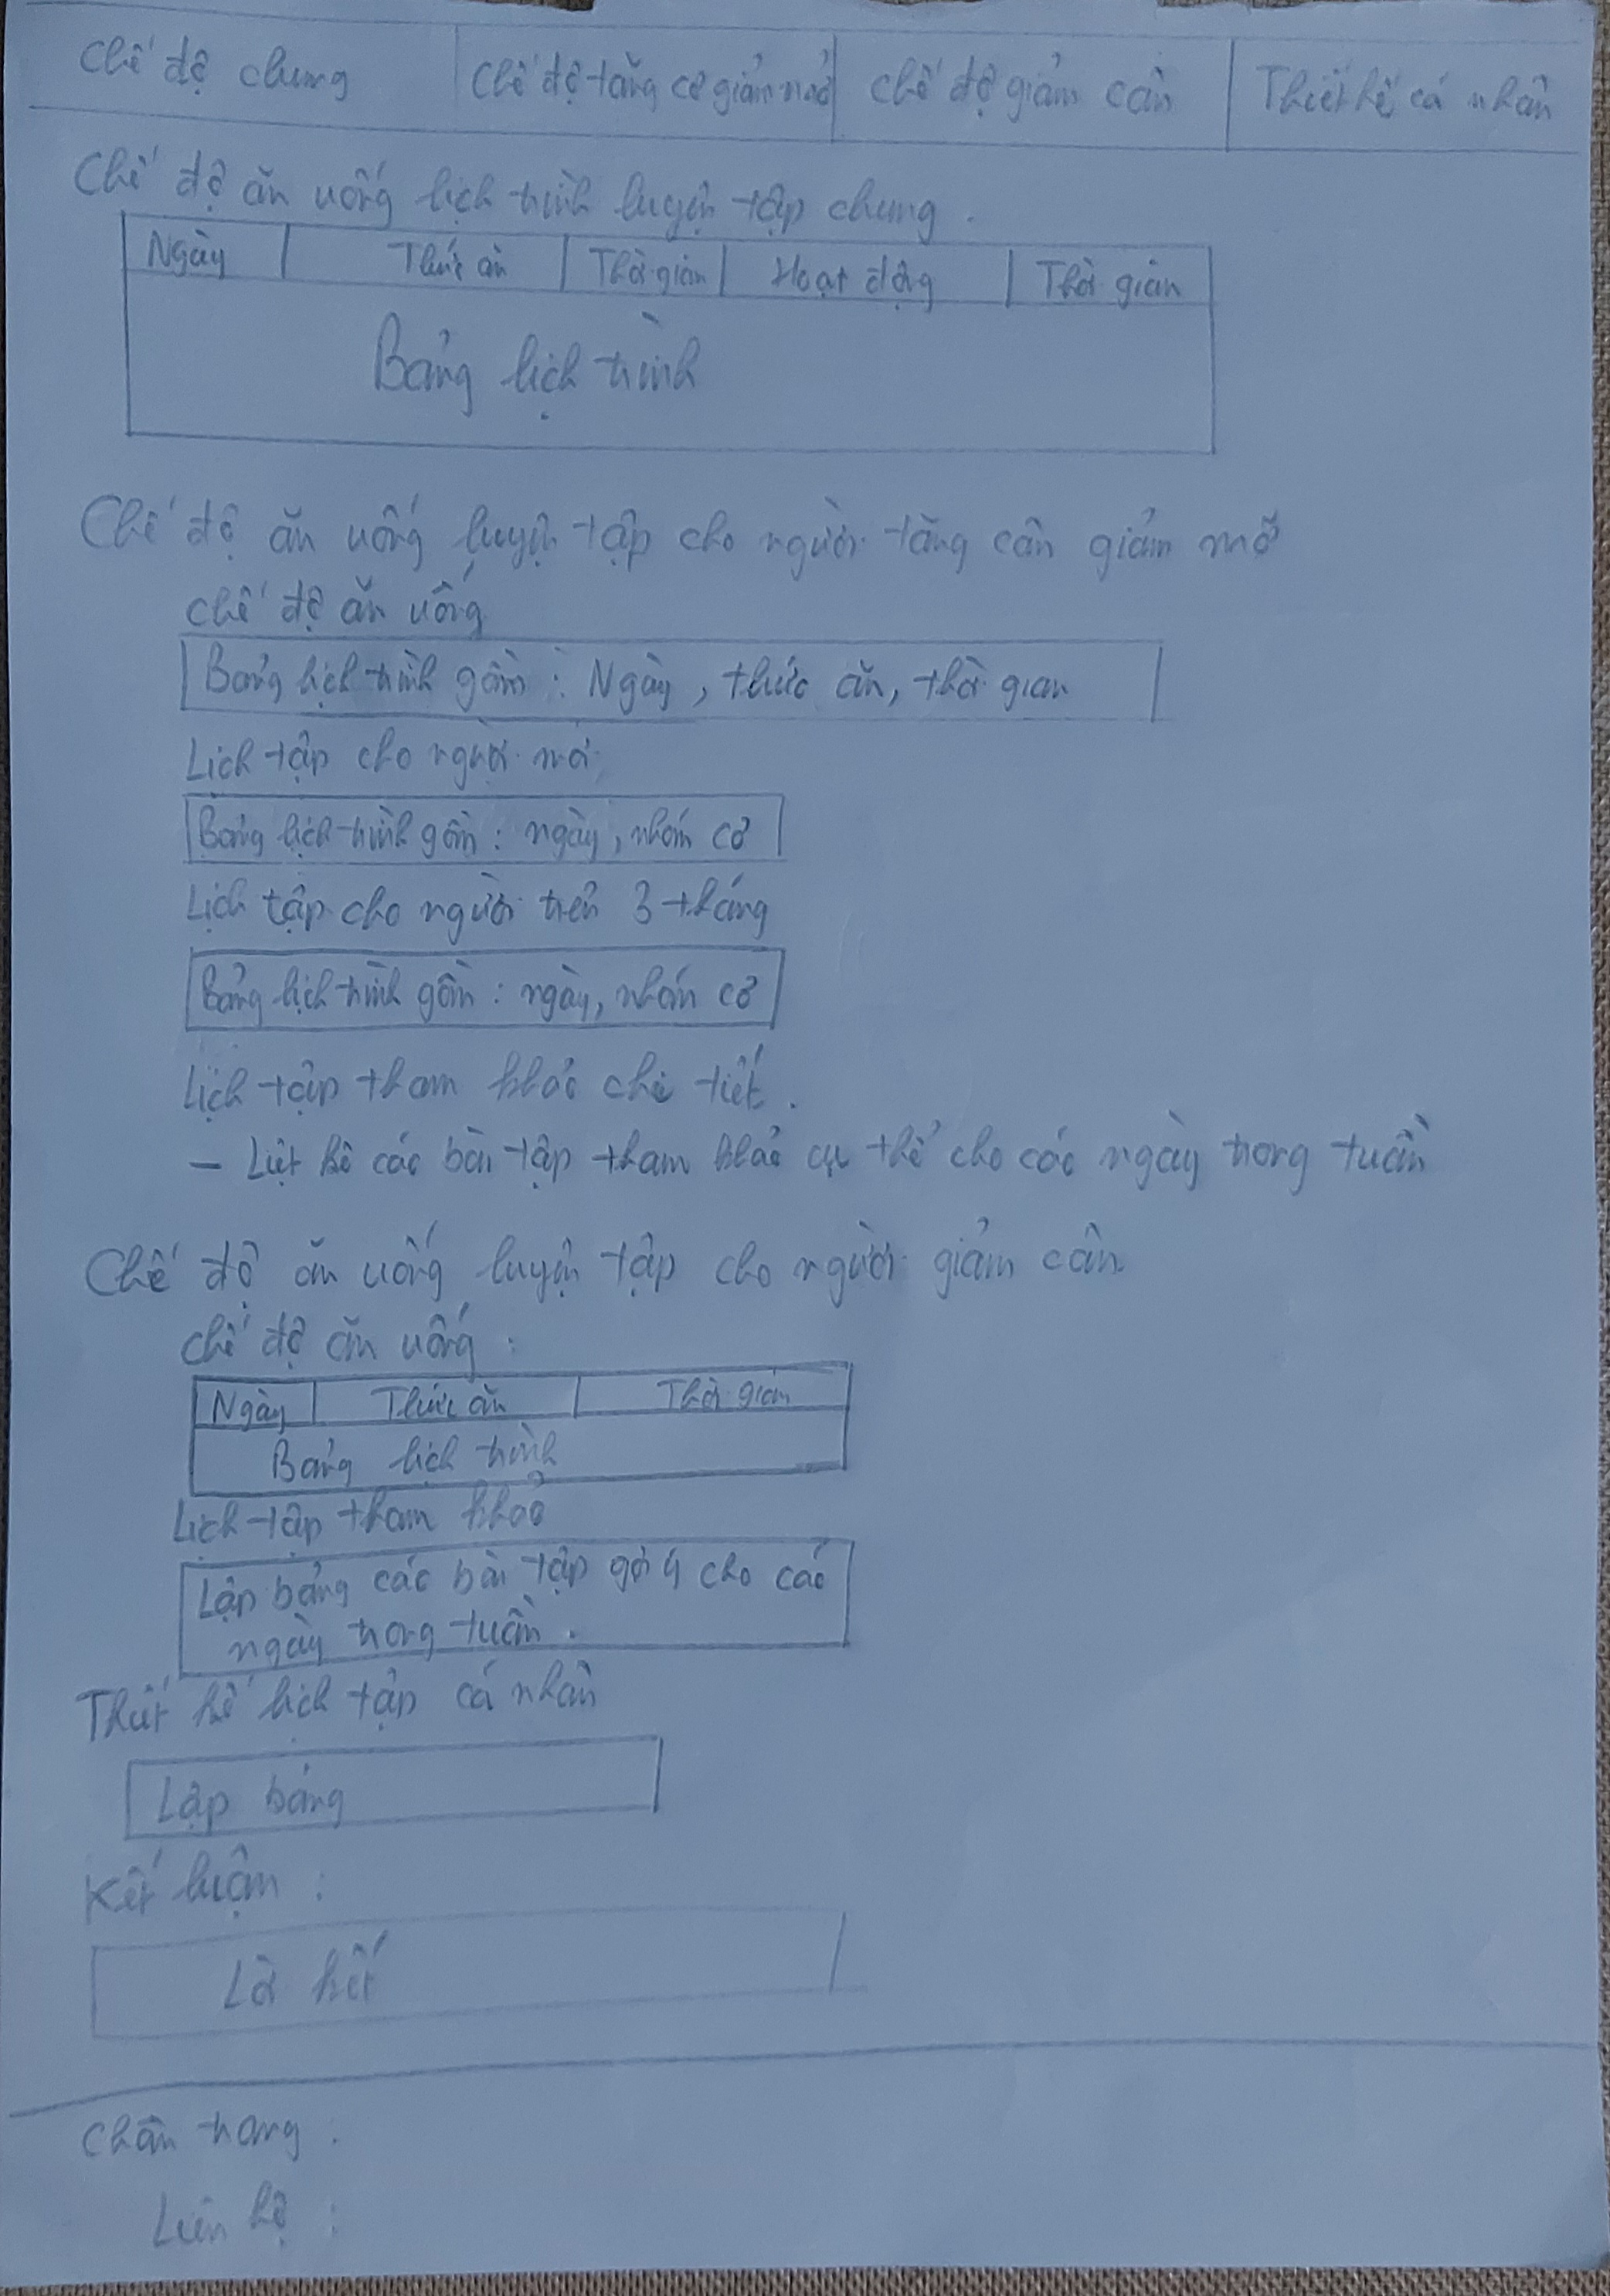 Chế độ chung Chế độ tăng cơ giảm mỡ Chế độ giảm cân Thiết kế cá nhân
Chế độ ăn uống lịch trình luyện tập chung.
Ngày Thức ăn Thời gian Hoạt động Thời gian
Bảng lịch trình
Chế độ ăn uống luyện tập cho người tăng cân giảm mỡ
Chế độ ăn uống
Bảng lịch trình gồm : Ngày, thức ăn, thời gian
Lịch tập cho người mới
Bảng lịch trình gồm : ngày, nhóm cơ
Lịch tập cho người trên 3 tháng
Bảng lịch trình gồm : ngày, nhóm cơ
Lịch tập tham khảo chi tiết.
- Liệt kê các bài tập tham khảo cụ thể cho các ngày trong tuần
Chế độ ăn uống luyện tập cho người giảm cân
Chế độ ăn uống :
Ngày Thức ăn Thời gian
Bảng lịch trình
Lịch tập tham khảo
Lập bảng các bài tập gợi ý cho các
ngày trong tuần.
Thiết kế lịch tập cá nhân
Lập bảng
Kết luận :
Lời kết
Chân trang :
Liên hệ :